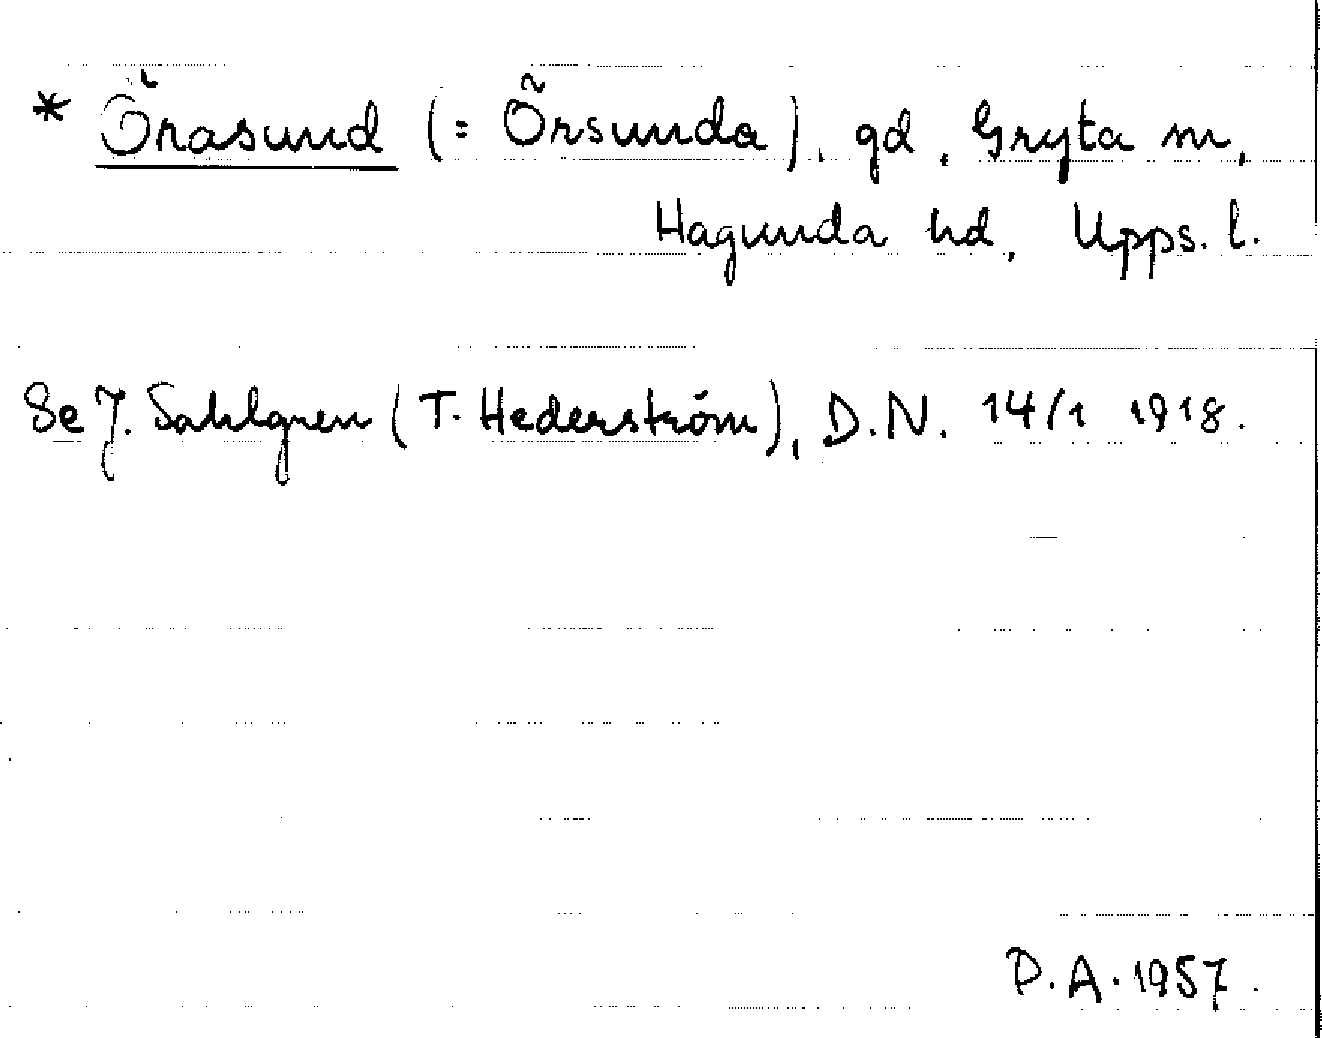 * Örasund (= Örsunda), gd, Gryta sn,
Hagunda hd, Upps. l.
Se J. Sahlgren (T. Hederström), D.N. 14/1 1918.
P.A. 1957.